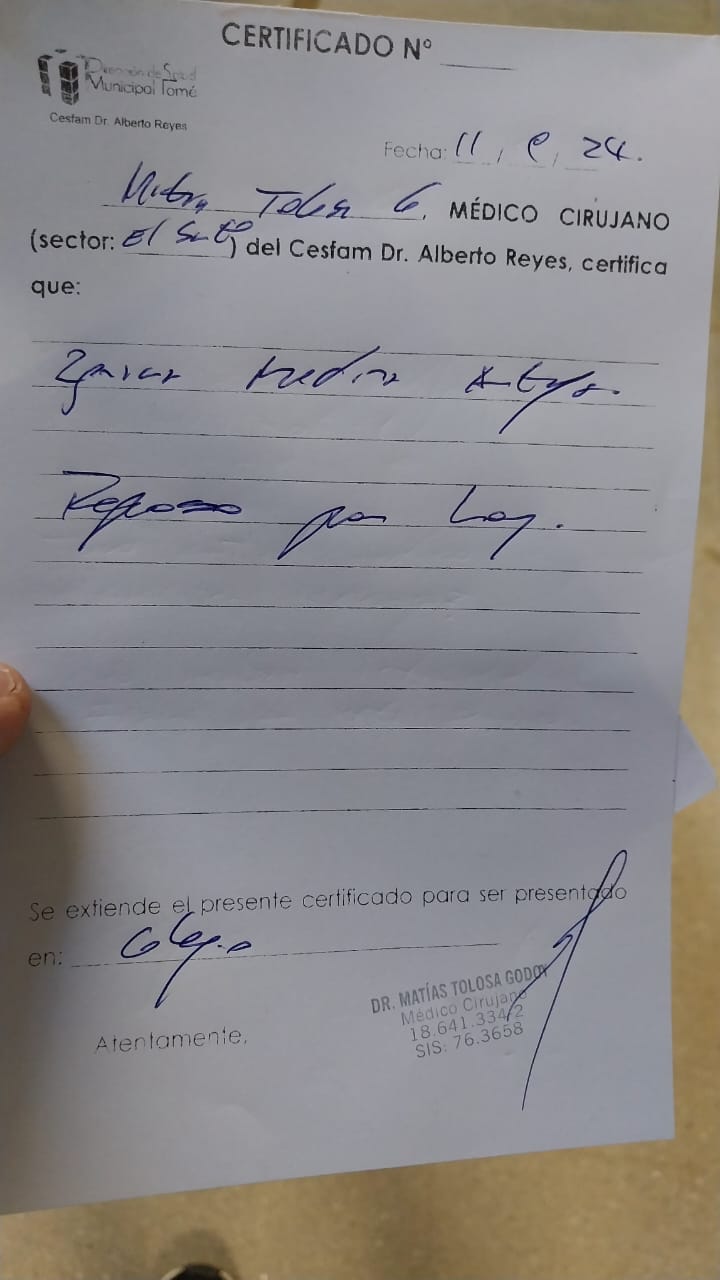 CERTIFICADO N°
Dirección de Salud
Municipal Tomé
Cesfam Dr. Alberto Reyes
Fecha: 11, 24.
Matías Tolosa G, MÉDICO CIRUJANO
(sector: El ) del Cesfam Dr. Alberto Reyes, certifica
que:
Medina
Reposo por hoy.
Se extiende el presente certificado para ser presentado
en: Colegio
DR. MATÍAS TOLOSA GODOY
Médico Cirujano
18.641.334/2
SIS: 76.3658
Atentamente,